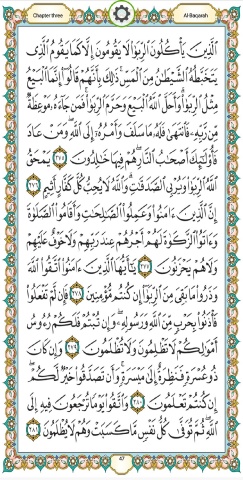 Chapter three
Al-Baqarah
الَّذِينَ يَأْكُلُونَ الرِّبَوٰا۟ لَا يَقُومُونَ إِلَّا كَمَا يَقُومُ الَّذِى
يَتَخَبَّطُهُ الشَّيْطَٰنُ مِنَ الْمَسِّ ذَٰلِكَ بِأَنَّهُمْ قَالُوٓا۟ إِنَّمَا الْبَيْعُ
مِثْلُ الرِّبَوٰا۟ وَأَحَلَّ اللَّهُ الْبَيْعَ وَحَرَّمَ الرِّبَوٰا۟ فَمَن جَآءَهُۥ مَوْعِظَةٌ
مِّن رَّبِّهِۦ فَانتَهَىٰ فَلَهُۥ مَا سَلَفَ وَأَمْرُهُۥٓ إِلَى اللَّهِ وَمَنْ عَادَ
فَأُو۟لَٰٓئِكَ أَصْحَٰبُ النَّارِ هُمْ فِيهَا خَٰلِدُونَ ٢٧٥ يَمْحَقُ
اللَّهُ الرِّبَوٰا۟ وَيُرْبِى الصَّدَقَٰتِ وَاللَّهُ لَا يُحِبُّ كُلَّ كَفَّارٍ أَثِيمٍ ٢٧٦
إِنَّ الَّذِينَ ءَامَنُوا۟ وَعَمِلُوا۟ الصَّٰلِحَٰتِ وَأَقَامُوا۟ الصَّلَوٰةَ
وَءَاتَوُا۟ الزَّكَوٰةَ لَهُمْ أَجْرُهُمْ عِندَ رَبِّهِمْ وَلَا خَوْفٌ عَلَيْهِمْ
وَلَا هُمْ يَحْزَنُونَ ٢٧٧ يَٰٓأَيُّهَا الَّذِينَ ءَامَنُوا۟ اتَّقُوا۟ اللَّهَ
وَذَرُوا۟ مَا بَقِىَ مِنَ الرِّبَوٰٓا۟ إِن كُنتُم مُّؤْمِنِينَ ٢٧٨ فَإِن لَّمْ تَفْعَلُوا۟
فَأْذَنُوا۟ بِحَرْبٍ مِّنَ اللَّهِ وَرَسُولِهِۦ وَإِن تُبْتُمْ فَلَكُمْ رُءُوسُ
أَمْوَٰلِكُمْ لَا تَظْلِمُونَ وَلَا تُظْلَمُونَ ٢٧٩ وَإِن كَانَ
ذُو عُسْرَةٍ فَنَظِرَةٌ إِلَىٰ مَيْسَرَةٍ وَأَن تَصَدَّقُوا۟ خَيْرٌ لَّكُمْ
إِن كُنتُمْ تَعْلَمُونَ ٢٨٠ وَاتَّقُوا۟ يَوْمًا تُرْجَعُونَ فِيهِ إِلَى
اللَّهِ ثُمَّ تُوَفَّىٰ كُلُّ نَفْسٍ مَّا كَسَبَتْ وَهُمْ لَا يُظْلَمُونَ ٢٨١
47